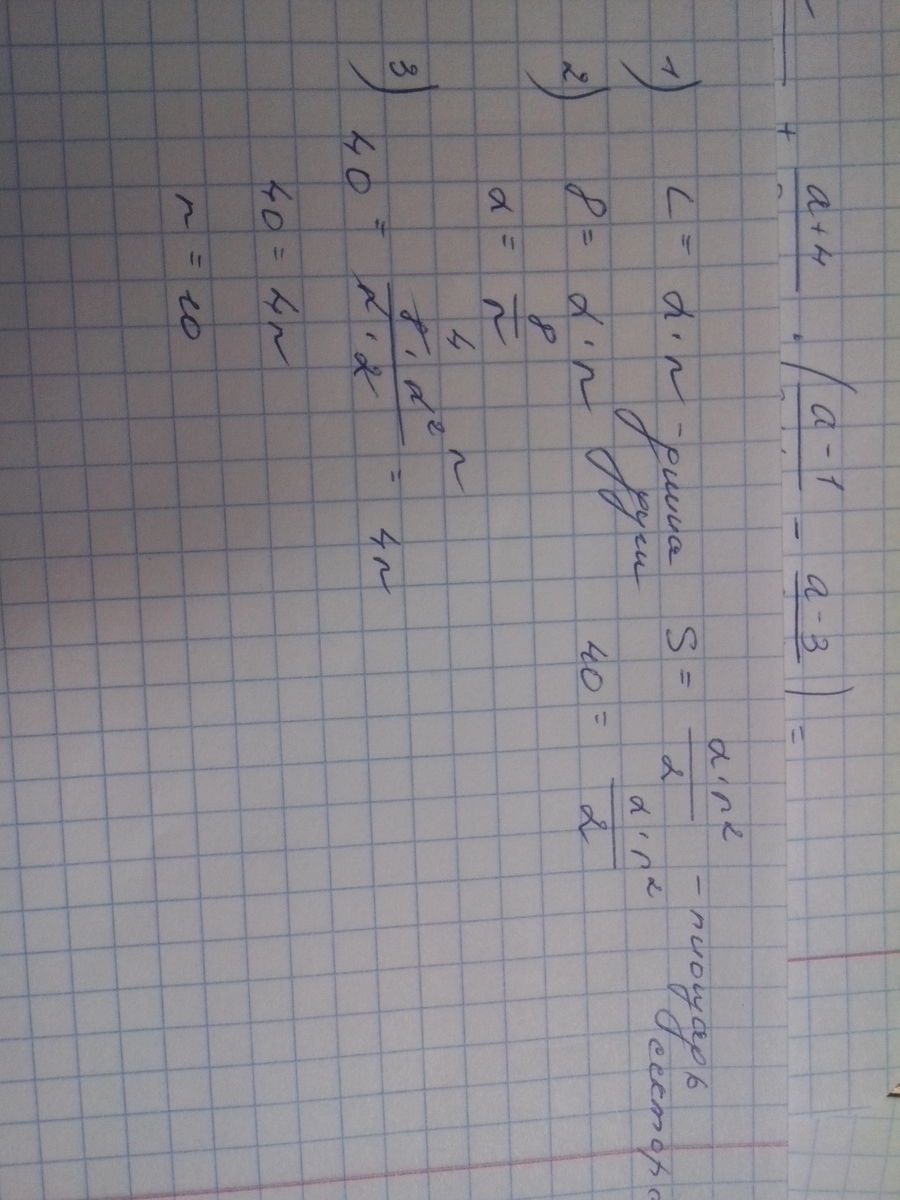 + a+4 · ( a-1 - a-3 ) =
1) L = α·r - длина дуги S = α·r² / 2 - площадь сектора
2) 8 = α·r 40 = α·r² / 2
α = 8 / r
3) 40 = 8·r² / r·2 = 4r
40 = 4r
r = 10